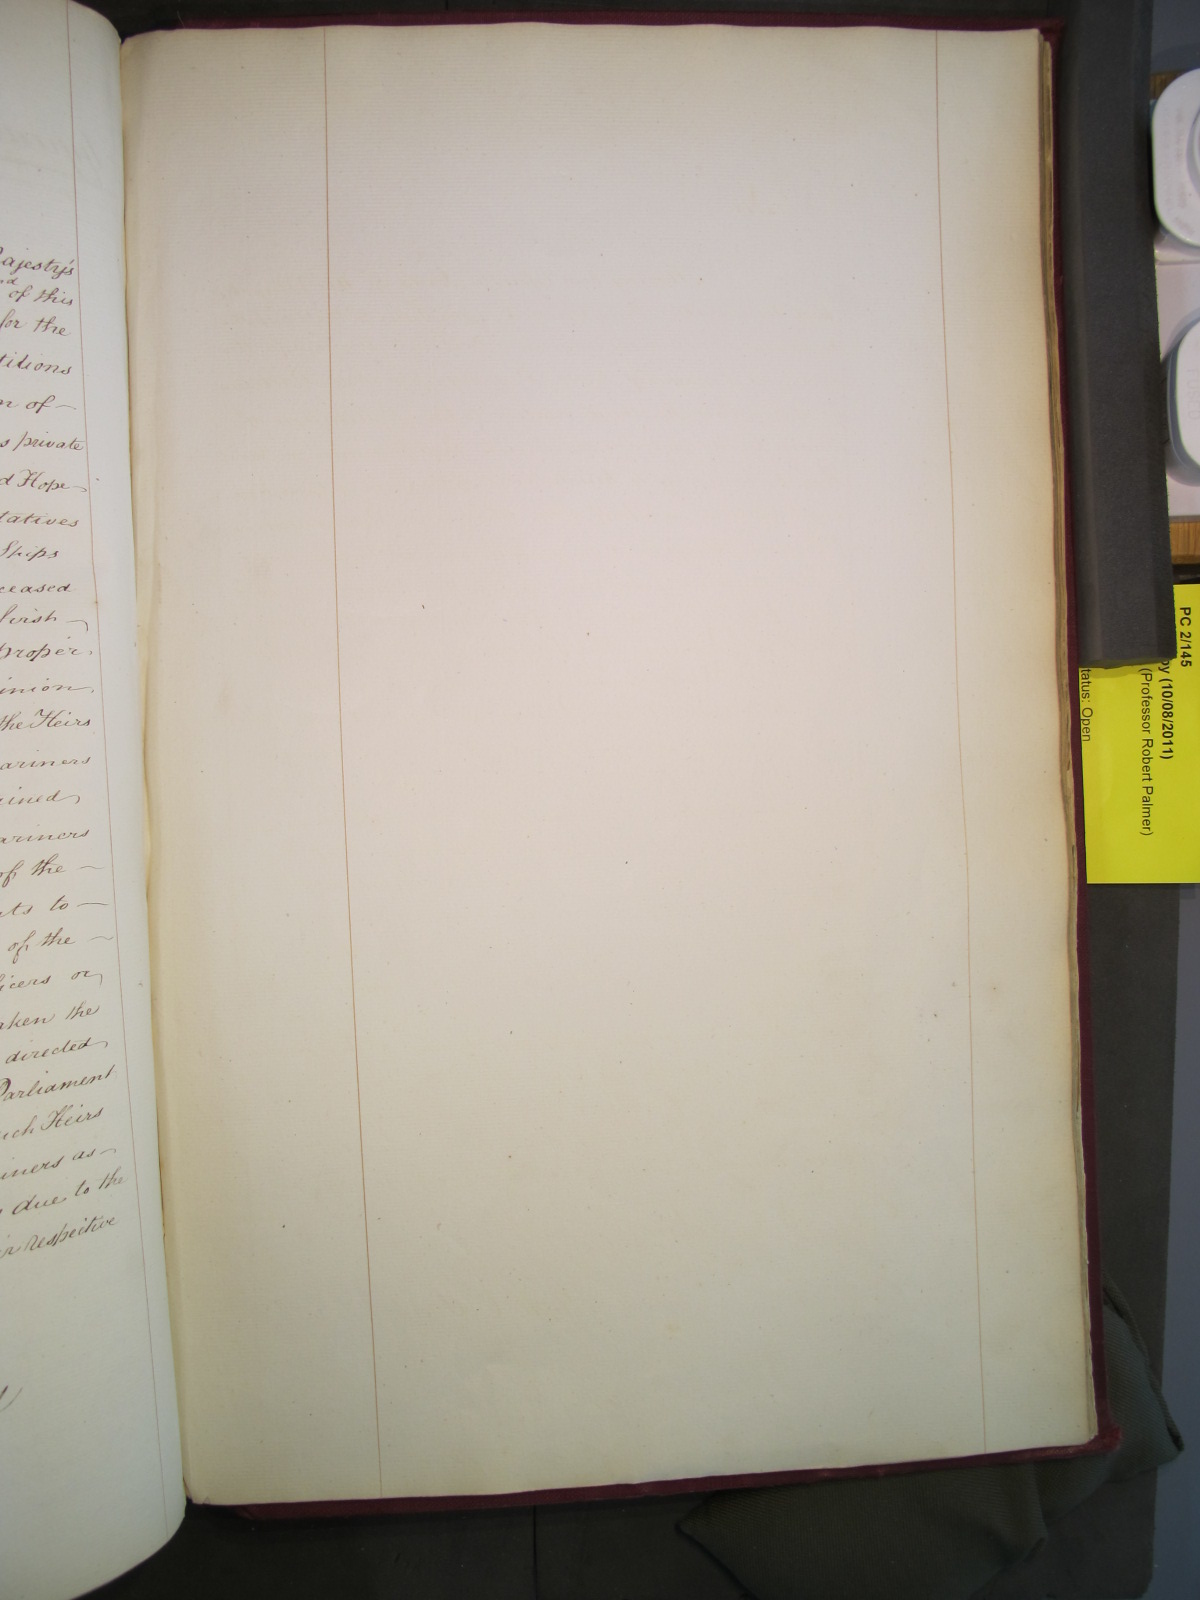 ajesty's
of this
for the
titions
of
private
Hope
tatives
Ships
ceased
Irish
proper
inion
the Heirs
ariners
ined
ariners
of the
ts to
of the
icers or
aken the
directed
Parliament
uch Heirs
iners as
due to the
respective
PC 2/145
by (10/08/2011)
(Professor Robert Palmer)
tatus: Open